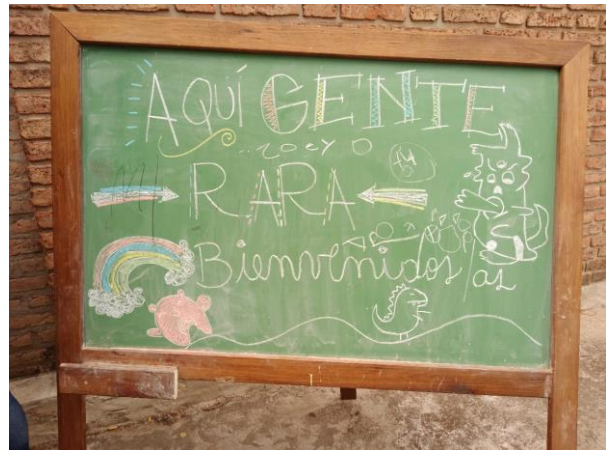 AQUÍ GENTE
RARA
Bienvenidos/as